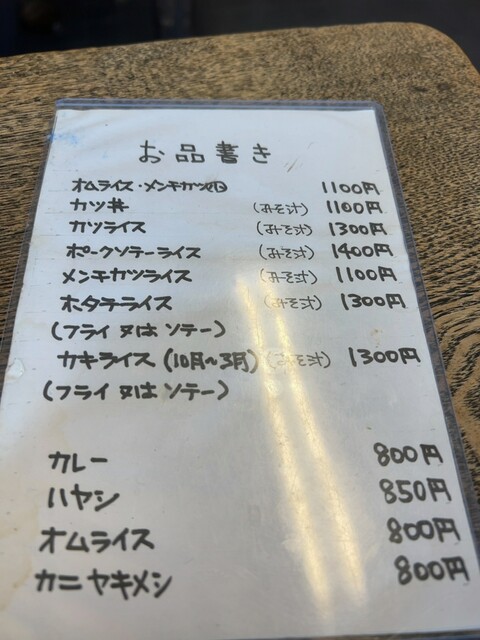 お品書き
オムライス・メンチカツ小 1100円
カツ丼 (みそ汁) 1100円
カツライス (みそ汁) 1300円
ポークソテーライス (みそ汁) 1400円
メンチカツライス (みそ汁) 1100円
ホタテライス (みそ汁) 1300円
(フライ又はソテー)
カキライス (10月~3月) (みそ汁) 1300円
(フライ又はソテー)
カレー 800円
ハヤシ 850円
オムライス 800円
カニヤキメシ 800円